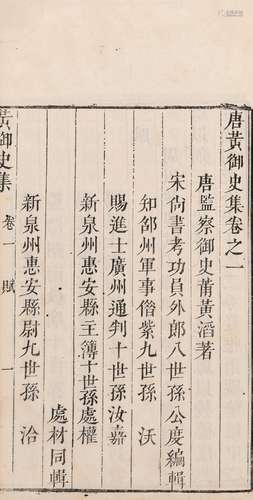 唐黃御史集卷之一
唐監察御史莆黃滔著
宋尙書考功員外郎八世孫公度編輯
知邵州軍事偕紫九世孫 沃
賜進士廣州通判十世孫汝嘉
新泉州惠安縣主簿十世孫處權
處材同輯
新泉州惠安縣尉九世孫 洽
黃御史集 卷一 賦 一